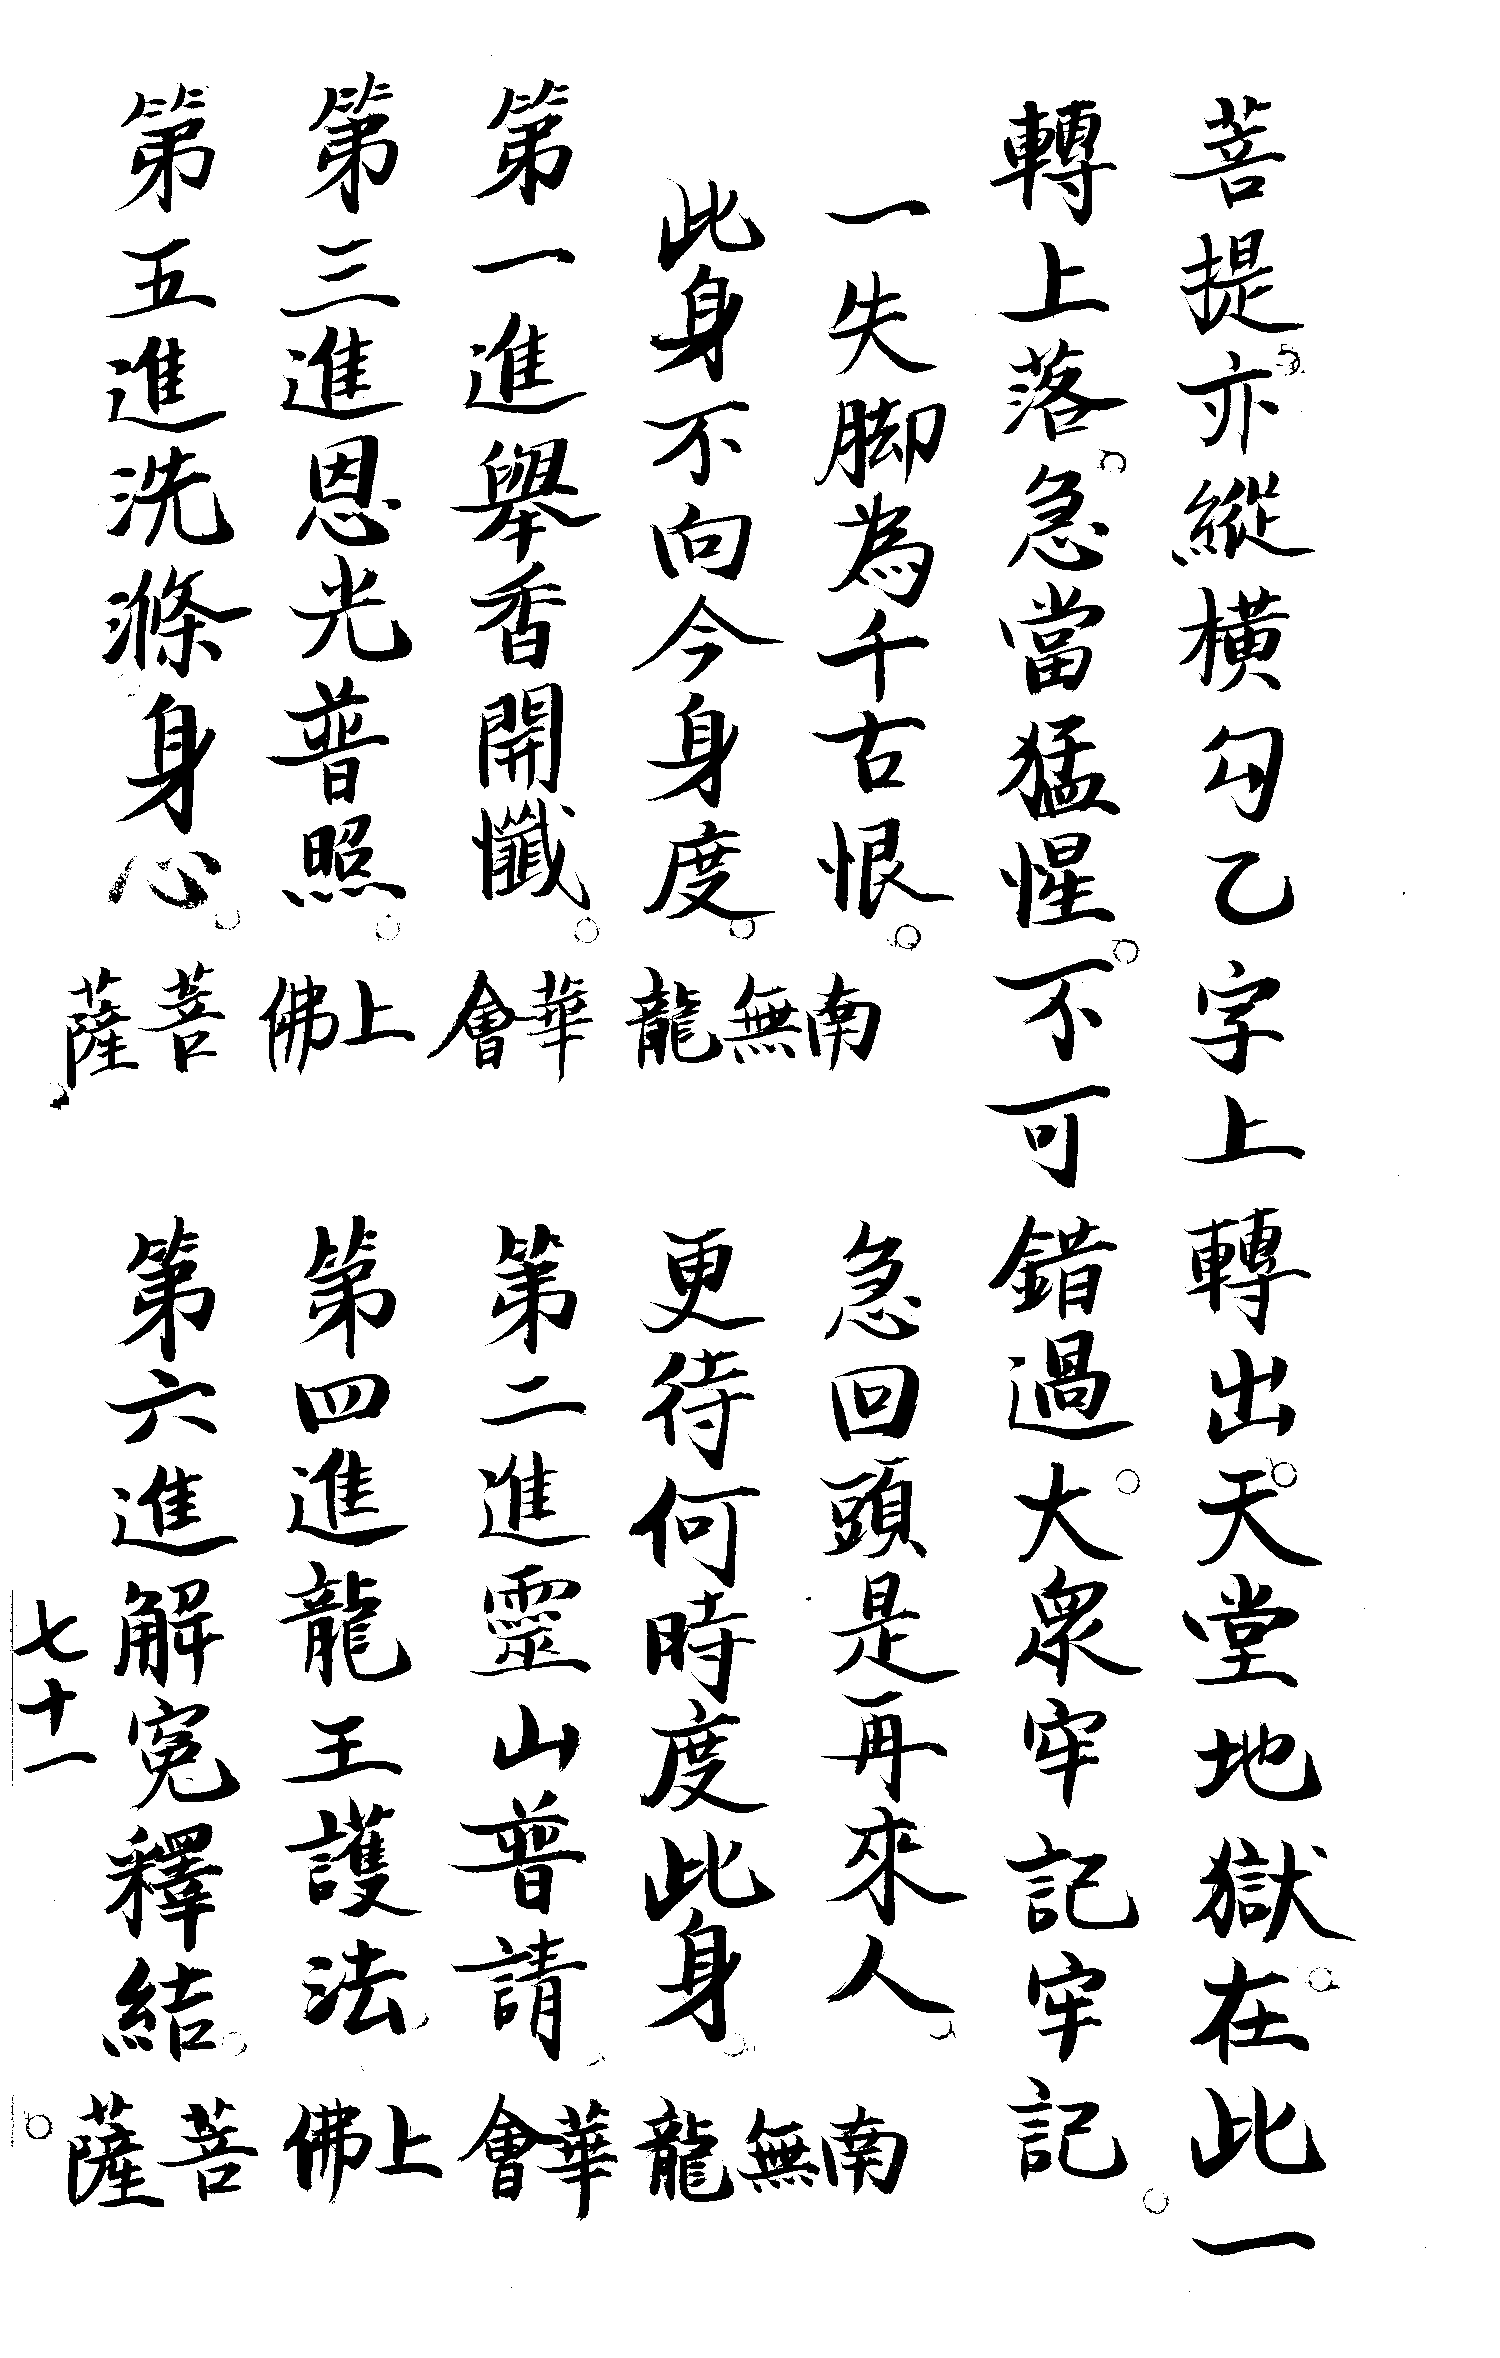 菩提。亦縱橫勾乙字上轉出。天堂地獄。在此一
轉上落。急當猛惺。不可錯過。大衆牢記牢記。
一失脚為千古恨。 急回頭是再來人。
此身不向今身度。 更待何時度此身。
第一進舉香開懺。 第二進靈山普請。
第三進恩光普照。 第四進龍王護法。
第五進洗滌身心。 第六進解冤釋結。
南無龍華會上佛菩薩。
南無龍華會上佛菩薩。
七十一